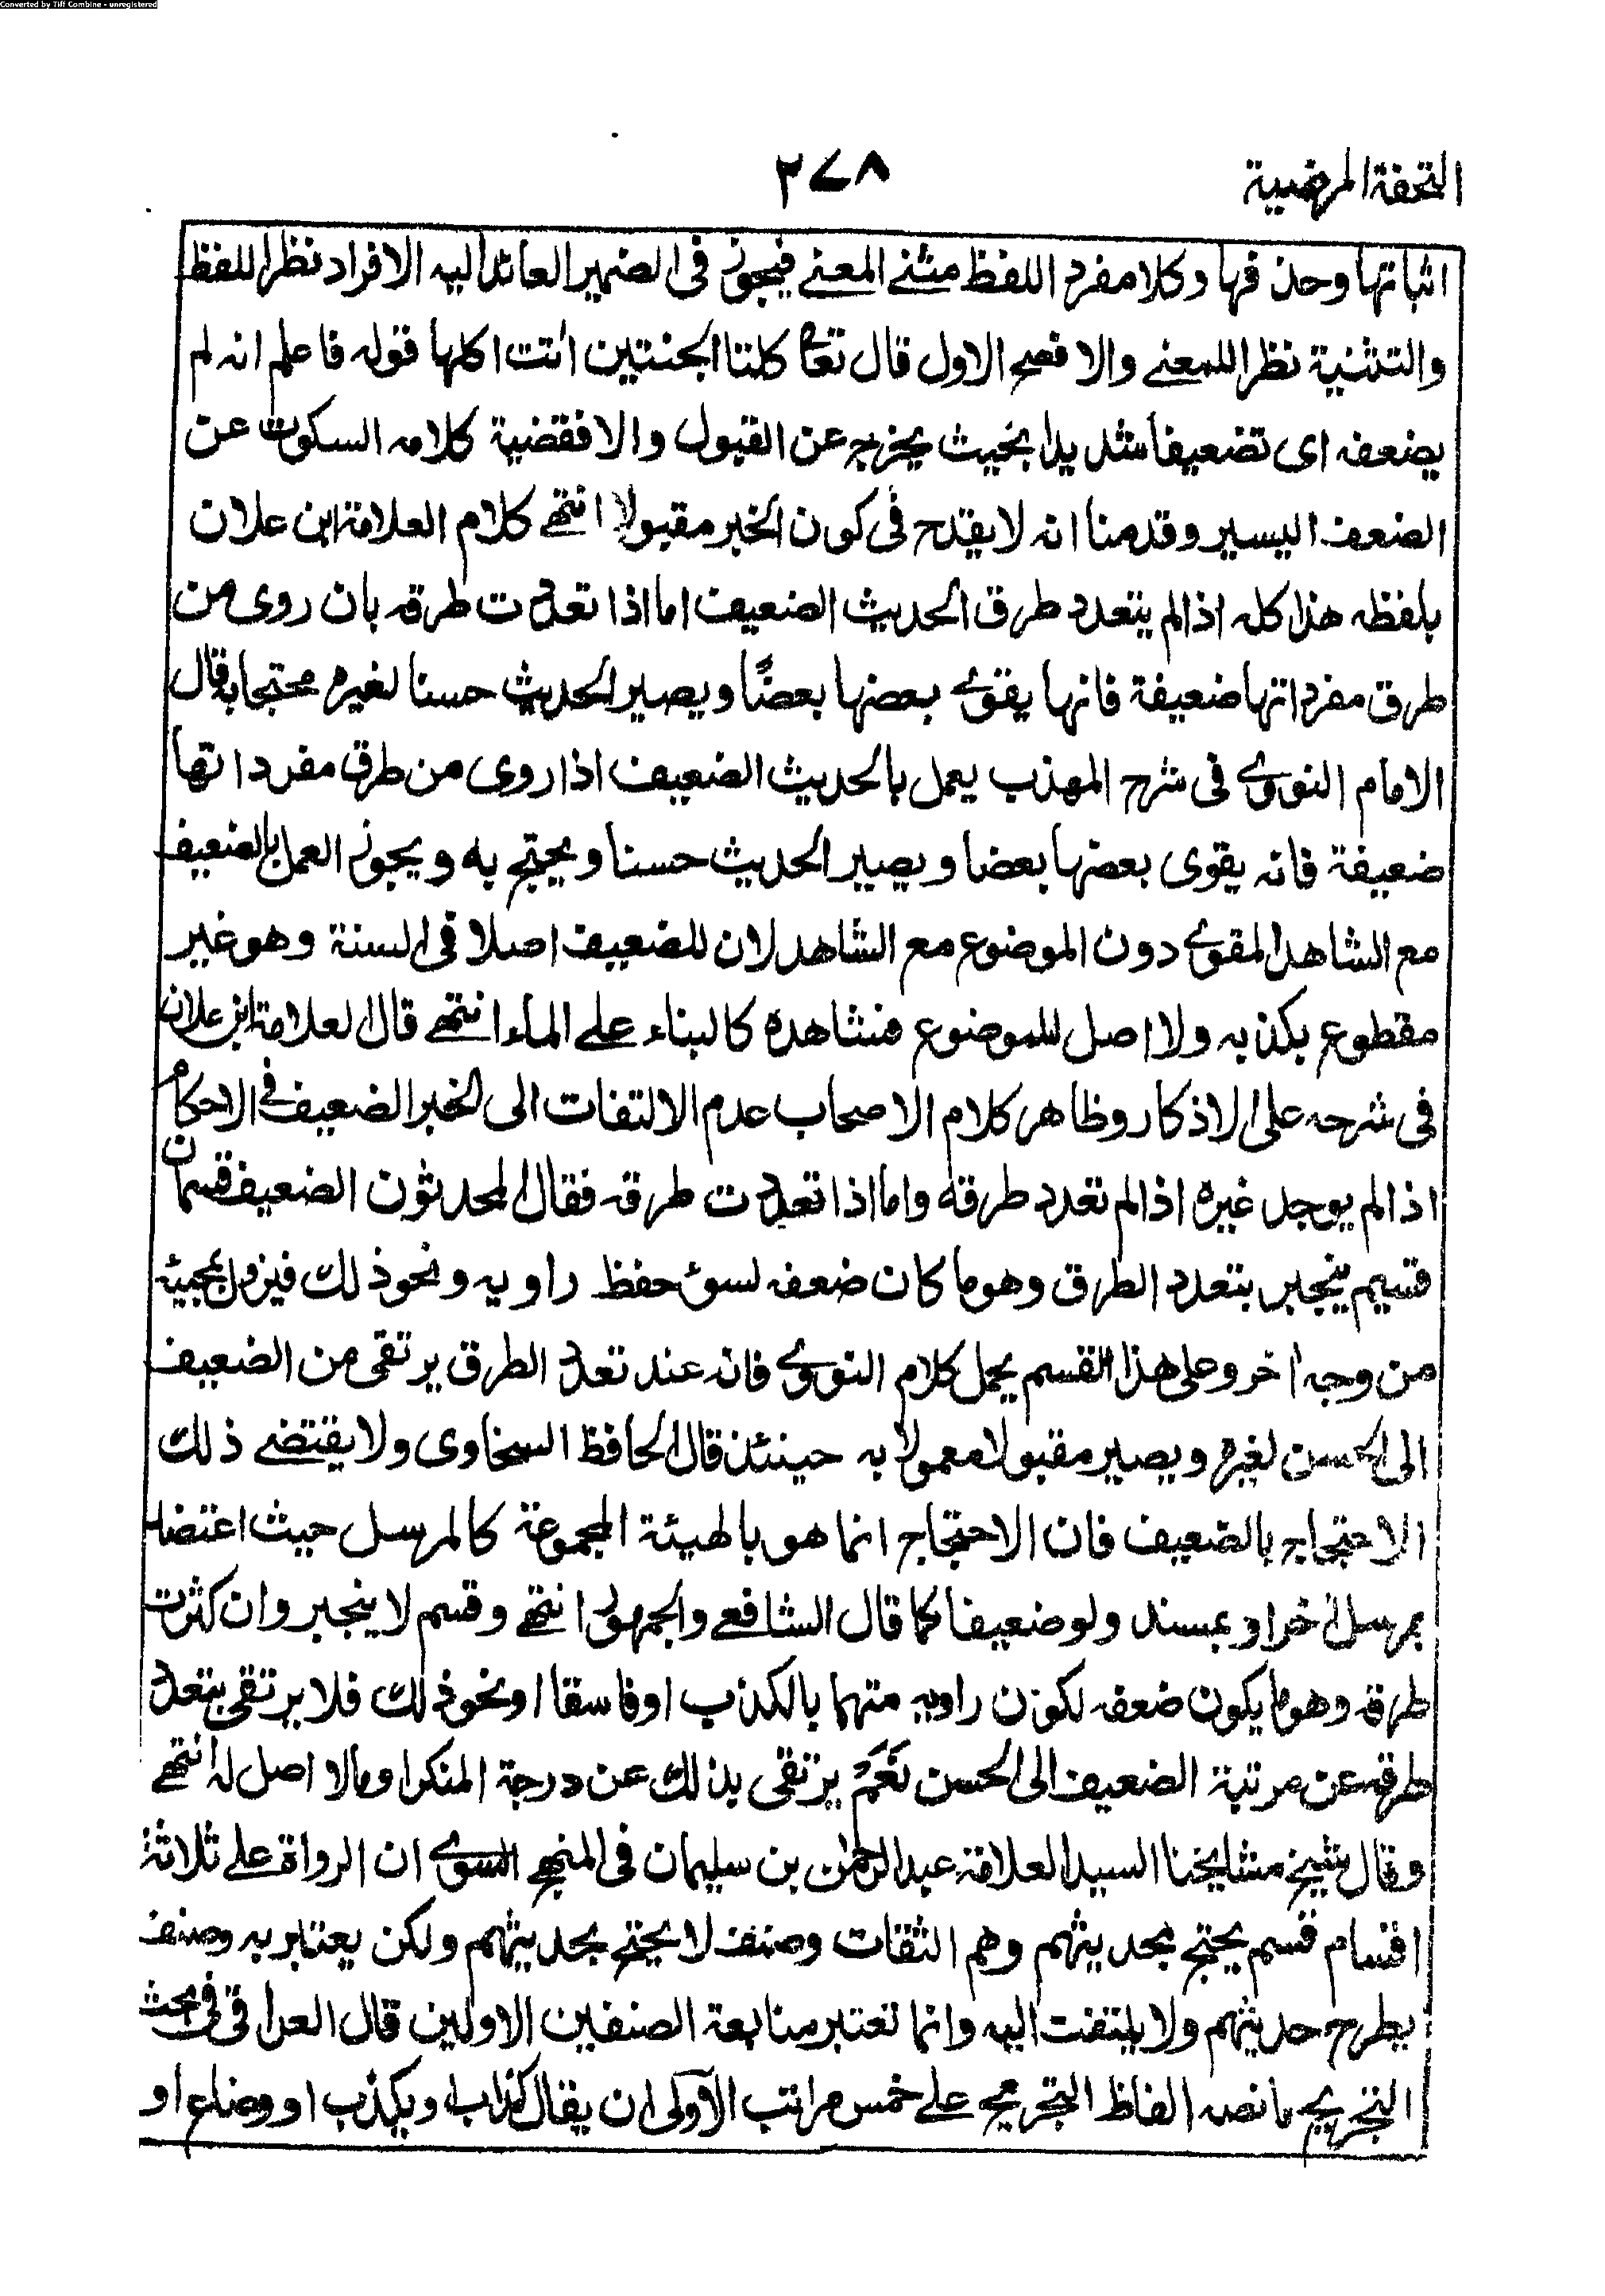 Converted by Tiff Combine - unregistered
التحفة المرضية
٢٧٨
اثباتها وحذفها وكلا مفرد اللفظ مثنے المعنے فيجوز فى الضمير العائد اليه الافراد نظرا للفظ
والتثنية نظرا للمعنے والافصح الاول قال تعا كلتا الجنتين اٰتت اكلها قوله فاعلم انه لم
يضعفه اى تضعيفا شديدا بحيث يخرج عن القبول والا فقضية كلامه السكوت عن
الضعف اليسير وقدمنا انه لا يقدح فى كون الخبر مقبولا انتهے كلام العلامة ابن علان
بلفظه هذا كله اذا لم يتعدد طرق الحديث الضعيف اما اذا تعددت طرقه بان روى من
طرق مفرداتها ضعيفة فانها يقوے بعضها بعضًا ويصير الحديث حسنا لغيره محتجا به قال
الامام النووے فى شرح المهذب يعمل بالحديث الضعيف اذا روى من طرق مفرداتها
ضعيفة فانه يقوى بعضها بعضا ويصير الحديث حسنا ويحتج به ويجوز العمل بالضعيف
مع الشاهد المقوے دون الموضوع مع الشاهد لان للضعيف اصلا فى السنة وهو غير
مقطوع بكذبه ولا اصل للموضوع فشاهده كالبناء علے الماء انتهے قال العلامة ابن علان
فى شرحه على الاذكار وظاهر كلام الاصحاب عدم الالتفات الى الخبر الضعيف فے الاحكام
اذا لم يوجد غيره اذا لم تعدد طرقه واما اذا تعددت طرقه فقال المحدثون الضعيف قسمان
قسيم ينجبر بتعدد الطرق وهو ما كان ضعفه لسوء حفظ راويه ونحو ذلك فيزول بمجيئه
من وجه اٰخر وعلى هذا القسم يحمل كلام النووے فانه عند تعدد الطرق يرتقى من الضعيف
الى الحسن لغيره ويصير مقبولا معمولا به حينئذ قال الحافظ السخاوى ولا يقتضے ذلك
الاحتجاج بالضعيف فان الاحتجاج انما هو بالهيئة المجموعة كالمرسل حيث اعتضد
بمرسل اٰخر او بمسند ولو ضعيفا كما قال الشافعے والجمهور انتهے وقسم لا ينجبر وان كثرت
طرقه وهو ما يكون ضعفه لكون راويه متهما بالكذب او فاسقا او نحو ذلك فلا يرتقى بتعدد
طرقه عن مرتبة الضعيف الى الحسن نَعَمْ يرتقى بذلك عن درجة المنكر او ما لا اصل له انتهے
وقال شيخ مشايخنا السيد العلامة عبد الرحمٰن بن سليمان فى المنهج السوے ان الرواة علے ثلاثة
اقسام قسم يحتج بحديثهم وهم الثقات وصنف لا يحتج بحديثهم ولكن يعتبر به وصنف
يطرح حديثهم ولا يلتفت اليه وانما تعتبر متابعة الصنفين الاولين قال العراقى فى بحث
التخريج ما نصه الفاظ التجريح علے خمس مراتب الاَولى ان يقال كذاب او يكذب او وضاع او